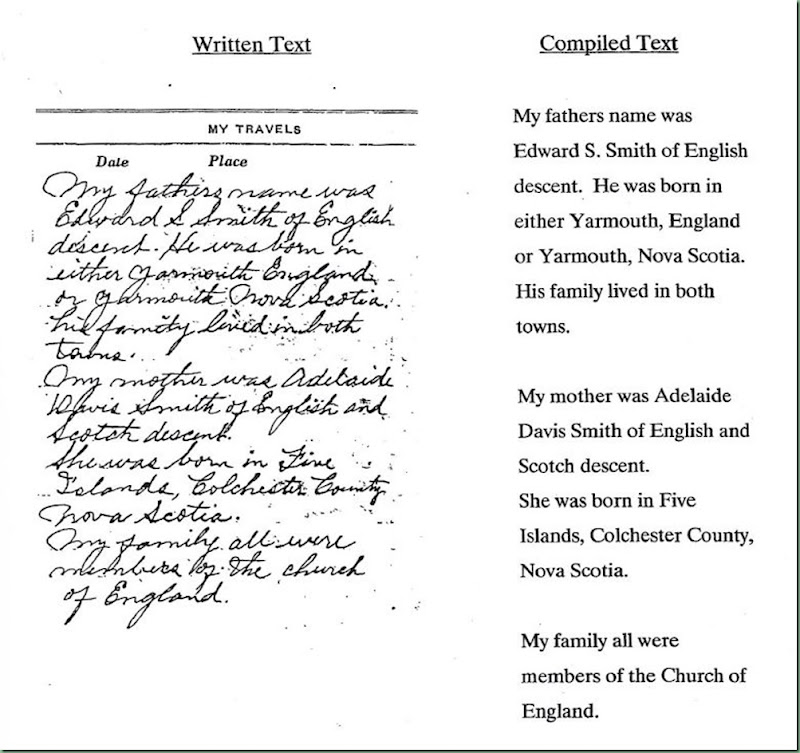 Written Text
MY TRAVELS
Date Place
My fathers name was
Edward S Smith of English
descent. He was born in
either Yarmouth England
or Yarmouth Nova Scotia.
his family lived in both
towns.
My mother was Adelaide
Davis Smith of English and
Scotch descent.
She was born in Five
Islands, Colchester County
Nova Scotia.
My family all were
members of the church
of England.
Compiled Text
My fathers name was
Edward S. Smith of English
descent. He was born in
either Yarmouth, England
or Yarmouth, Nova Scotia.
His family lived in both
towns.
My mother was Adelaide
Davis Smith of English and
Scotch descent.
She was born in Five
Islands, Colchester County,
Nova Scotia.
My family all were
members of the Church of
England.